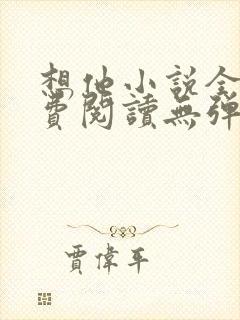 想他小説全
費閱讀無彈
賈偉平